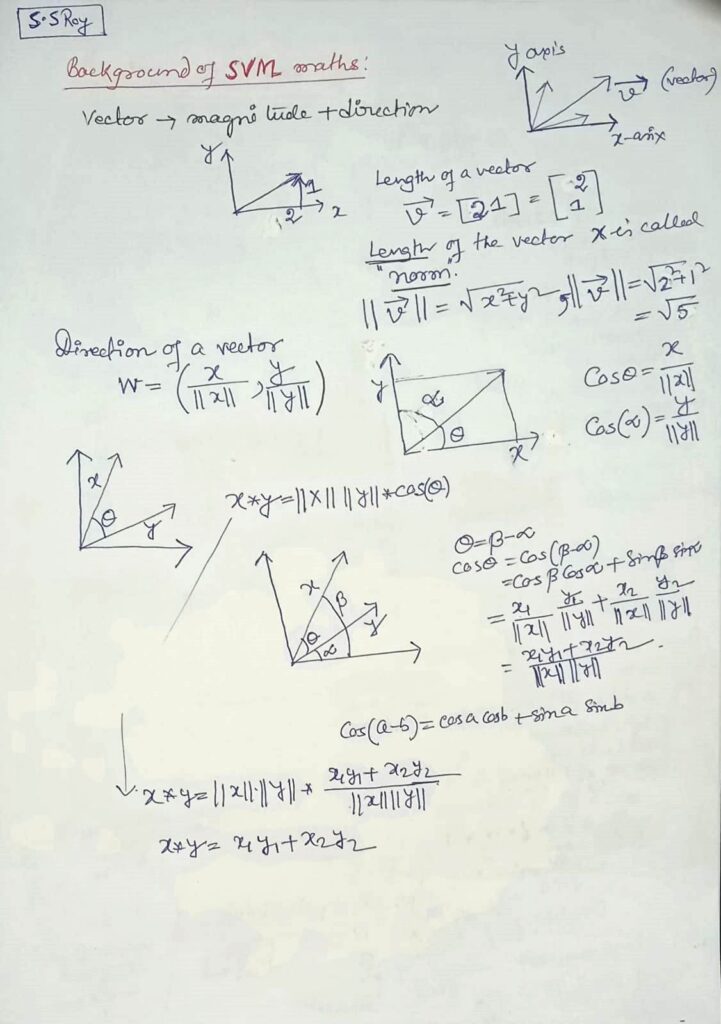 S.S Roy
Background of SVM maths:
Vector → magnitude + direction
y axis
v⃗ (vector)
x-axix
y
1
2
x
Length of a vector
v⃗ = [2 1] = [2 1]
Length of the vector x is called
"norm".
||v⃗|| = √x²+y², ||v⃗|| = √2²+1²
= √5
Direction of a vector
W = (x/||x||, y/||y||)
y
α
θ
x
Cosθ = x/||x||
Cos(α) = y/||y||
x
θ
y
x*y = ||x|| ||y|| * cos(θ)
x
β
θ
α
y
θ = β-α
cosθ = Cos(β-α)
= cosβ cosα + sinβ sinα
= x₁/||x|| y₁/||y|| + x₂/||x|| y₂/||y||
= x₁y₁+x₂y₂/||x|| ||y||.
Cos(a-b) = cosa cosb + sina sinb
x*y = ||x||·||y|| * x₁y₁+x₂y₂/||x|| ||y||
x*y = x₁y₁+x₂y₂